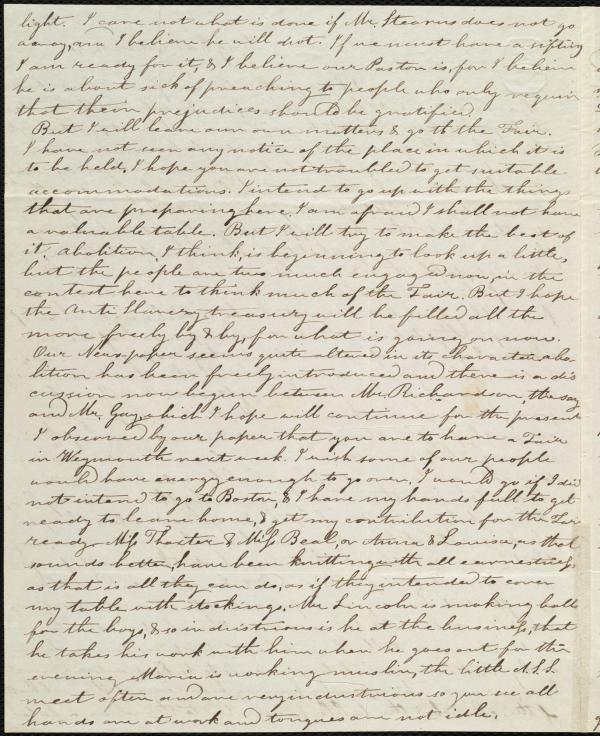 light. I care not what is done if Mr. Stearns does not go
away, and I believe he will not. If we must have a sifting
I am ready for it, & I believe our Pastor is, for I believe
he is about sick of preaching to people who only require
that their prejudices should be gratified.
But I will leave our own matters & go to the Fair.
I have not seen any notice of the place in which it is
to be held, I hope you are not troubled to get suitable
accommodations. I intend to go up with the things
that are preparing here. I am afraid I shall not have
a valuable table. But I will try to make the best of
it. Abolition, I think, is beginning to look up a little,
but the people are two much engaged now, in the
contest here to think much of the Fair. But I hope
the Anti Slavery treasury will be filled all the
more freely by & by, for what is going on now.
Our Newspaper seems quite altered in its character abo-
lition has been freely introduced and there is a dis
cussion now begun between Mr. Richardson,
and Mr. Gay which I hope will continue for the present
I observed by our paper that you are to have a Fair
in Weymouth next week. I wish some of our people
would have energy enough to go over, I would go if I did
not intend to go to Boston, & I have my hands full to get
ready to leave home, & get my contribution for the Fair
ready. Mrs Thaxter & Miss Beal, or Anna & Louisa, as that
sounds better, have been knitting with all earnestness,
as that is all they can do, as if they intended to cover
my table with stockings. Mr Lincoln is making balls
for the boys, & so industrious is he at the business, that
he takes his work with him when he goes out for the
evening. Maria is working muslin, the little A.S.S.
meet often and are very industrious so you see all
hands are at work and tongues are not idle.